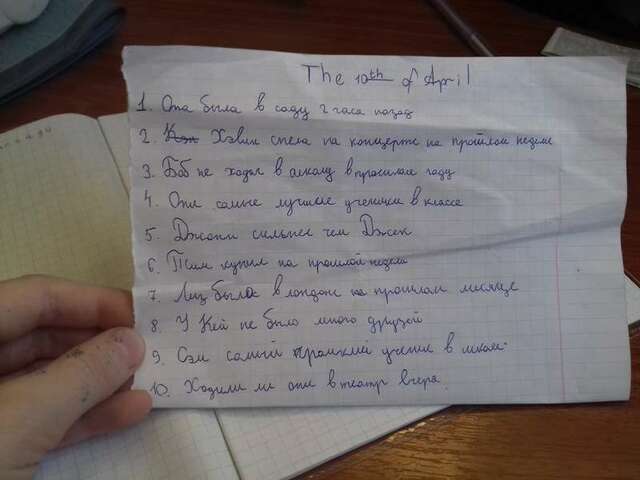 The 10th of April
1. Она была в саду 2 часа назад
2. Хэвин спела на концерте на прошлой неделе
3. Боб не ходил в школу в прошлом году
4. Они самые лучшие ученики в классе
5. Джонни сильнее чем Джек
6. Тим купил на прошлой неделе
7. Лиз была в лондоне на прошлом месяце
8. У Кей не было много друзей
9. Сэм самый громкий ученик в школе
10. Ходили ли они в театр вчера